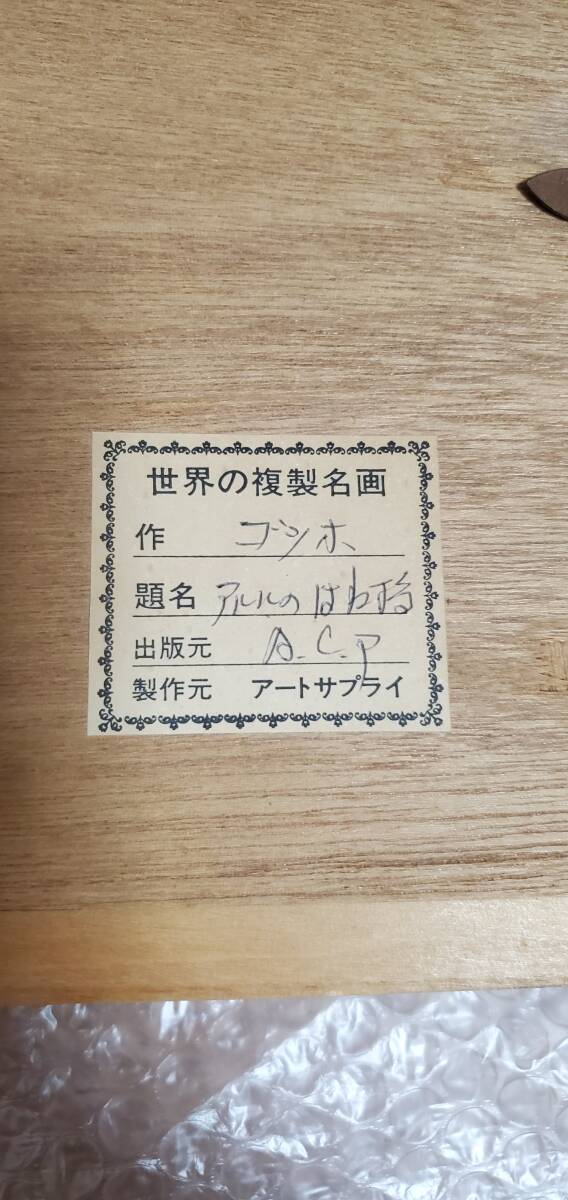 世界の複製名画
作 ゴッホ
題名 アルルのはね橋
出版元 A.C.P
製作元 アートサプライ